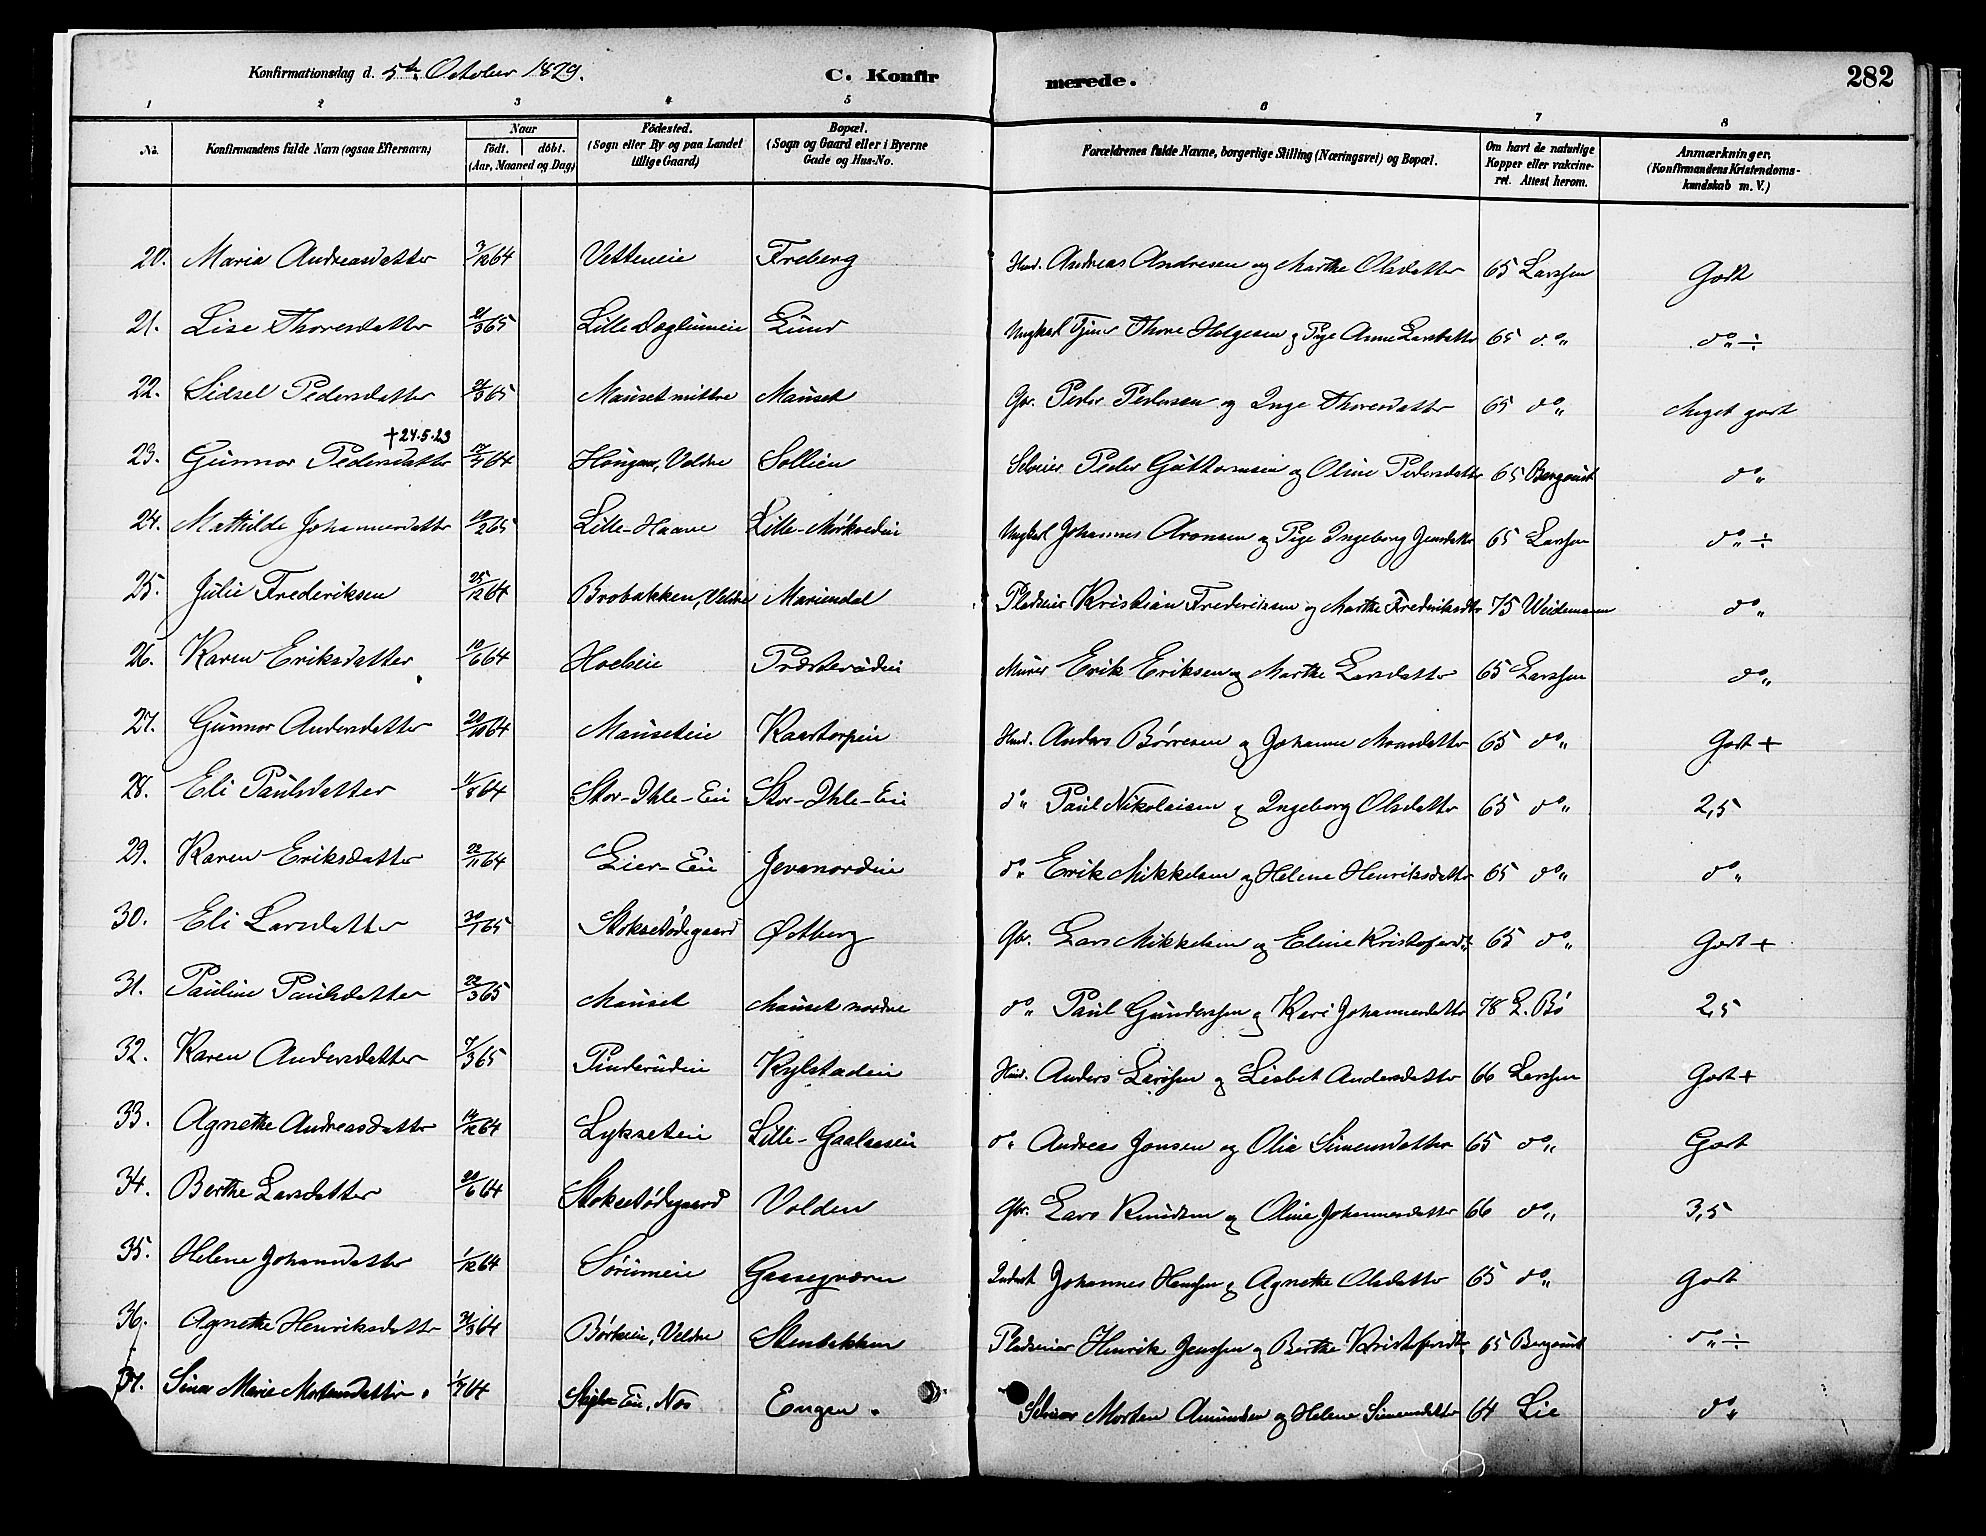 Konfirmationsdag d. 5te October 1879. C. Konfir merede. 282
1 2 3 4 5 6 7 8
No. Konfirmandens fulde Navn (ogsaa Efternavn) Naar født. døbt. (Aar, Maaned og Dag) Fødested. (Sogn eller By og paa Landet tillige Gaard) Bopæl. (Sogn og Gaard eller i Byerne Gade og Hus-No. Forældrenes fulde Navne, borgerlige Stilling (Næringsvei) og Bopæl. Om havt de naturlige Kopper eller vakcineret. Attest herom. Anmærkninger. (Konfirmandens Kristendomskundskab m. V.)
20. Maria Andreasdatter 7/12 64 Vetteneie Freberg Husd. Andreas Andresen og Marthe Olsdatter 65 Larssen Godt
21. Lise Thoresdatter 21/3 65 Lille Doglumeie Lund Ungkarl Tjener Thore Helgesen og Pige Anne Larsdatter 65 do „ do „ ÷
22. Sidsel Pedersdatter 21/3 65 Mauset mittre Mauset Gbr. Peder Pedersen og Inge Thoresdatter 65 do „ Meget godt
23. Gunnor Pedersdatter †24.5.23 17/7 64 Haugen, Veldre Sollien Selveier Peder Guttormsen og Oline Pedersdatter 65 Bergquist do „
24. Mathilde Johannesdatter 19/2 65 Lille-Haave Lille-Mørkvedeie Ungkarl Johannes Aronsen og Pige Ingeborg Jensdatter 65 Larssen do „ ÷
25. Julie Frederiksen 25/12 64 Brobakken, Veldre Mariendal Pladseier Kristian Frederiksen og Marthe Frederiksdtr 75 Weidemann do „
26. Karen Eriksdatter 10/6 64 Hoelseie Præsterudeie Murer Erik Eriksen og Marthe Larsdatter 65 Larssen do „
27. Gunnor Andersdatter 20/10 64 Mauseteie Kaatorpeie Husd. Anders Børresen og Johanne Monsdatter 65 do „ Godt +
28. Eli Paulsdatter 11/8 64 Stor-Ihle-Eie Stor-Ihle-Eie do „ Paul Nikolaisen og Ingeborg Olsdatter 65 do „ 2,5
29. Karen Eriksdatter 22/11 64 Lier-Eie Jevanordeie do „ Erik Mikkelsen og Helene Henriksdatter 65 do „ do „
30. Eli Larsdatter 30/1 65 Stoksetødegaard Østberg Gbr. Lars Mikkelsen og Eline Kristofersd. 65 do „ Godt +
31. Pauline Paulsdatter 22/3 65 Mauset Mauset nordre do „ Paul Gunderssen og Kari Johannesdatter 78 L. Bø 2,5
32. Karen Andersdatter 7/3 65 Pinderudeie Kylstadeie Husd. Anders Larssen og Lisbet Andersdatter 66 Larssen Godt +
33. Agnethe Andreasdatter 14/12 64 Lykseteie Lille-Gaalaaseie do „ Andreas Jonsen og Olia Simensdatter 65 do „ Godt
34. Berthe Larsdatter 21/6 64 Stoksetødegaard Volden Gbr. Lars Knudsen og Oline Johannesdatter 66 do „ 3,5
35. Helene Johansdatter 1/12 64 Sørumeie Gaasegværn Inderst Johannes Hanssen og Agnethe Olsdatter 65 do „ Godt
36. Agnethe Henriksdatter 31/3 64 Børkeeie, Veldre Stenbakken Pladseier Henrik Jenssen og Berthe Kristofersdtr 65 Bergquist do „ ÷
37. Sina Marie Mortensdatter 1/7 64 Eie, Næs Engen Selveier Morten Amundsen og Helene Simensdatter 64 Lie do „